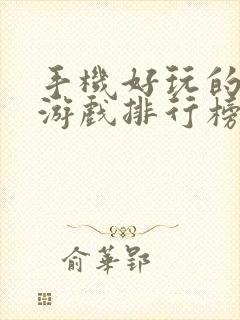 手機好玩的
游戲排行榜
俞華郢